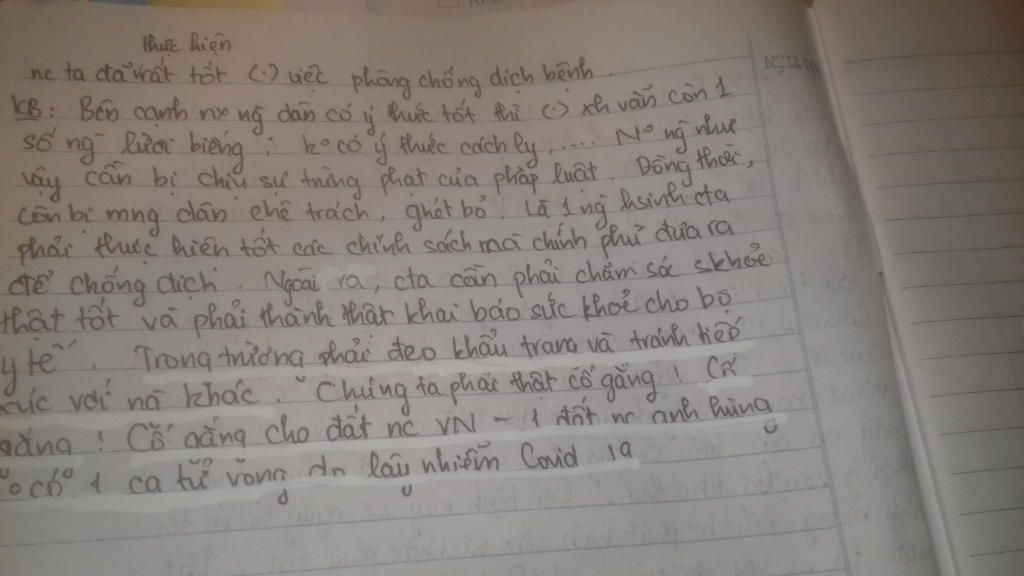 thực hiện
nc ta đã rất tốt (.) việc phòng chống dịch bệnh.
KB: Bên cạnh nx ng dân có ý thức tốt thì (.) xh vẫn còn 1
số ng lười biếng; ko có ý thức cách ly,.... No ng như
vậy cần bị chịu sự trừng phạt của pháp luật. Đồng thời,
còn bị mng dân chê trách, ghét bỏ. Là 1 ng hsinh cta
phải thực hiện tốt các chính sách mà chính phủ đưa ra
để chống dịch. Ngoài ra, cta cần phải chăm sóc skhoẻ
thật tốt và phải thành thật khai báo sức khoẻ cho bộ
y tế. Trong trường phải đeo khẩu trang và tránh tiếp
xúc với ng khác. "Chúng ta phải thật cố gắng! Cố
gắng! Cố gắng cho đất nc VN - 1 đất nc anh hùng
có 1 ca tử vong do lây nhiễm Covid 19